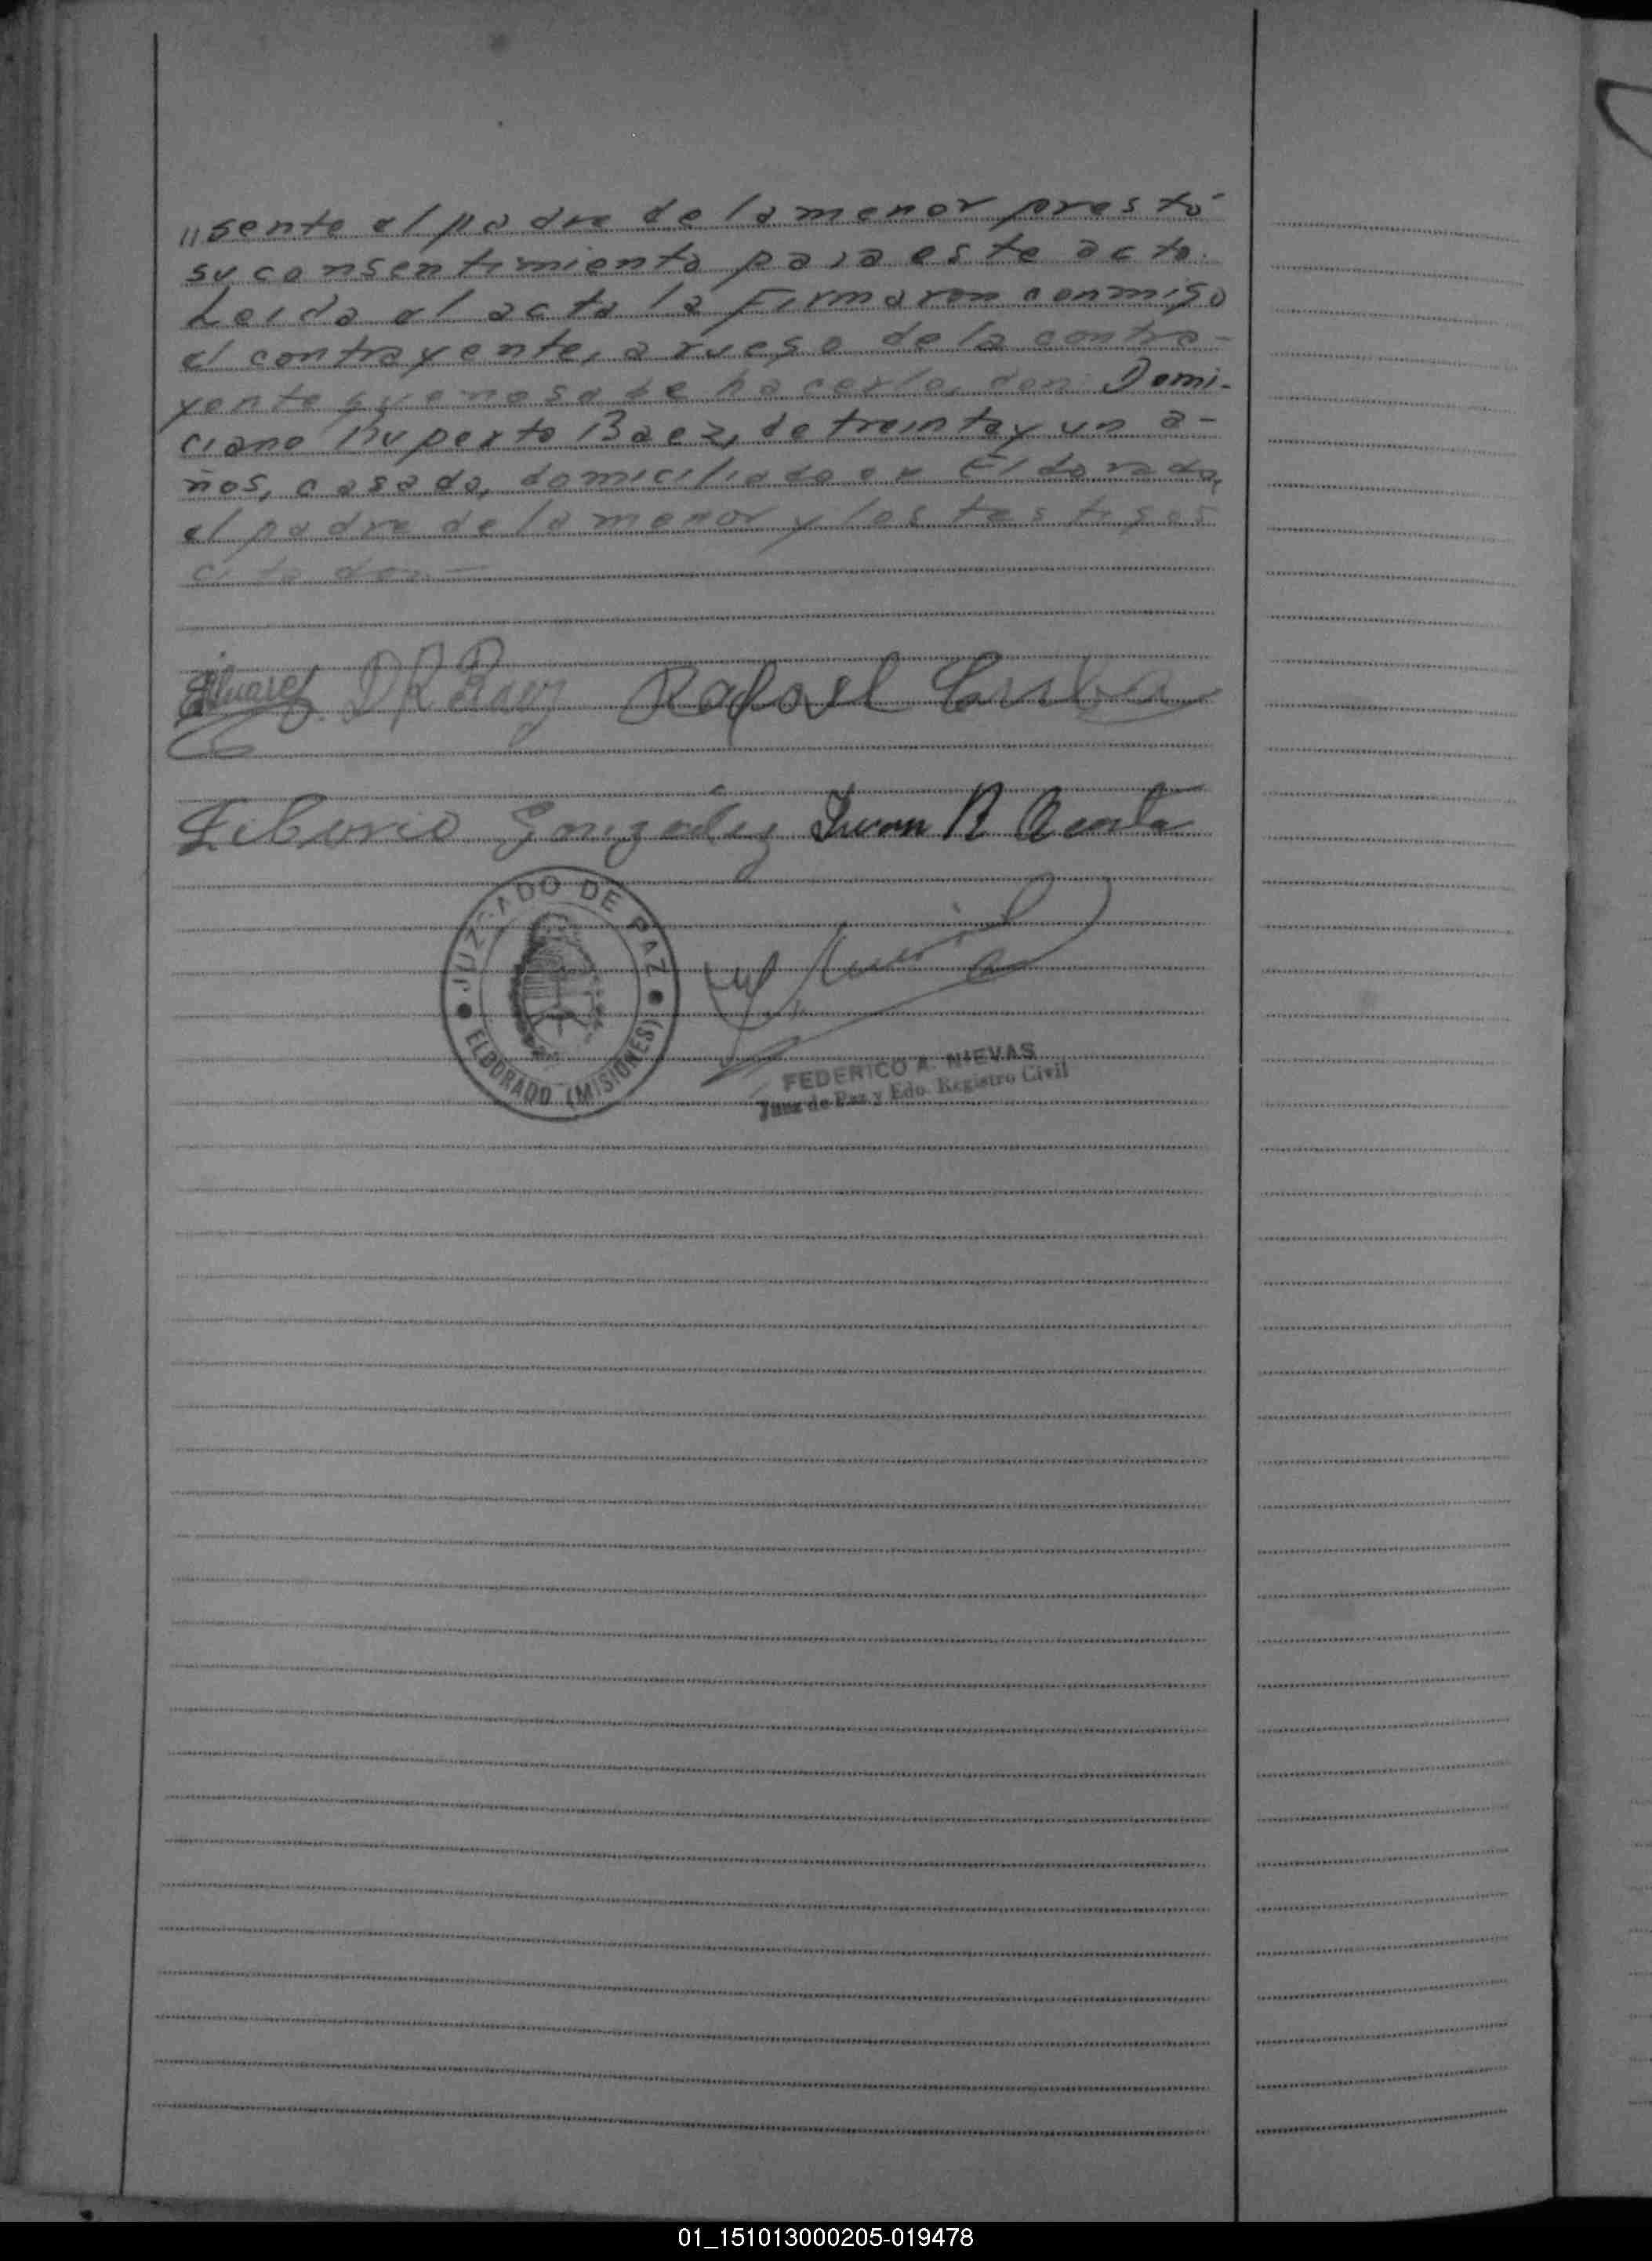 "sente el padre de la menor prestó
su consentimiento para este acto.
Leida el acta la firmaron conmigo
el contrayente, a ruego de la contra-
yente que no sabe hacerlo, don Domi-
ciano Ruperto Baez, de treinta y un a-
ños, casado, domiciliado en Eldorado,
el padre de la menor y los testigos
citados.—
D R Baez Rafael
Liborio Gonzalez Juan R Acosta
JUZGADO DE PAZ
ELDORADO (MISIONES)
FEDERICO A. NIEVAS
Juez de Paz y Edo. Registro Civil
01_151013000205-019478